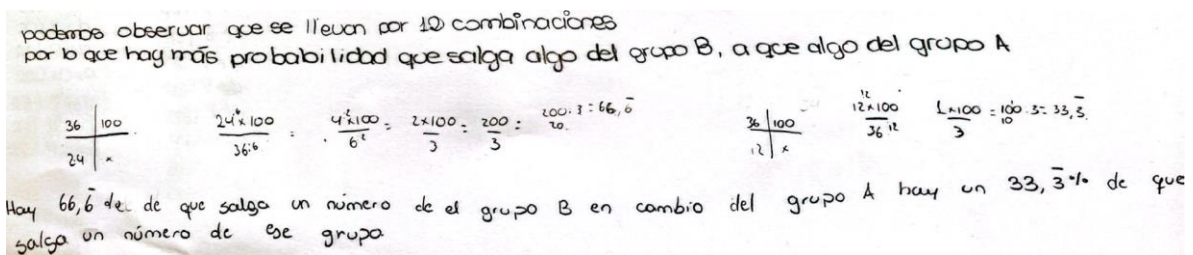 podemos observar que se llevan por 12 combinaciones
por lo que hay más probabilidad que salga algo del grupo B, a que algo del grupo A
36 | 100
24 | x
24 x 100 / 36:6 = 4 x 100 / 6 = 2 x 100 / 3 = 200 / 3 = 200:3 = 66,6̄
20
36 | 100
12 | x
12 x 100 / 36 1 x 100 / 3 = 100:3 = 33,3̄
10
Hay 66,6̄ de que salga un número de el grupo B en cambio del grupo A hay un 33,3̄ % de que
salga un número de ese grupo